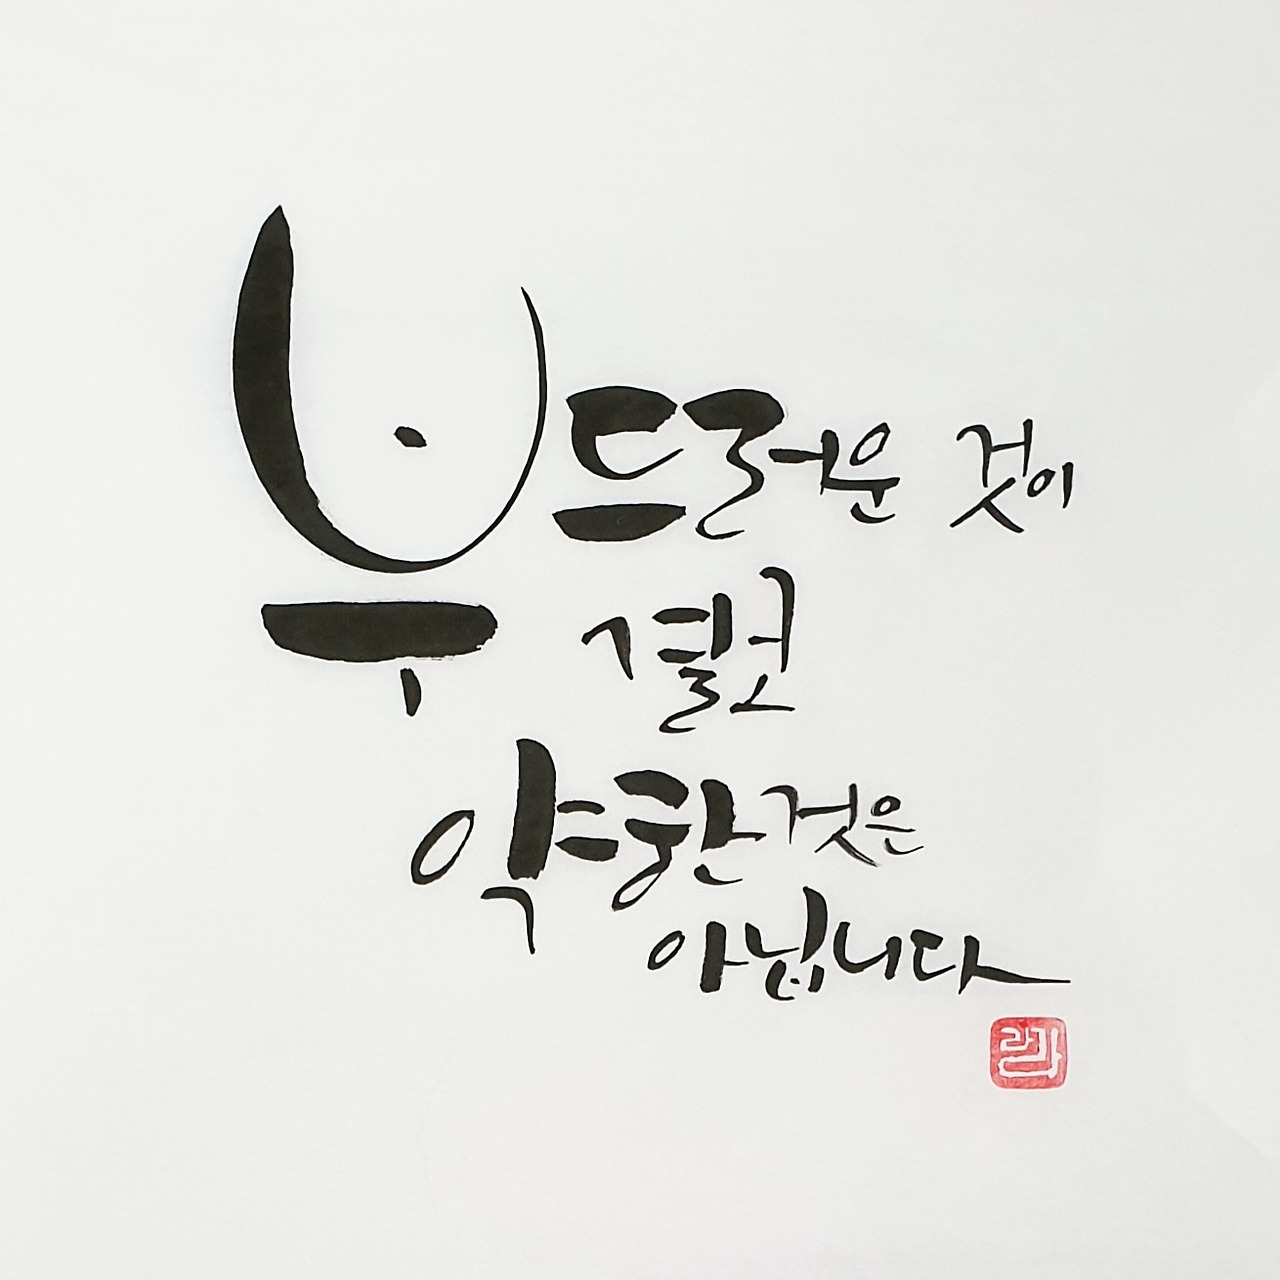 부드러운 것이
결코
약한 것은
아닙니다